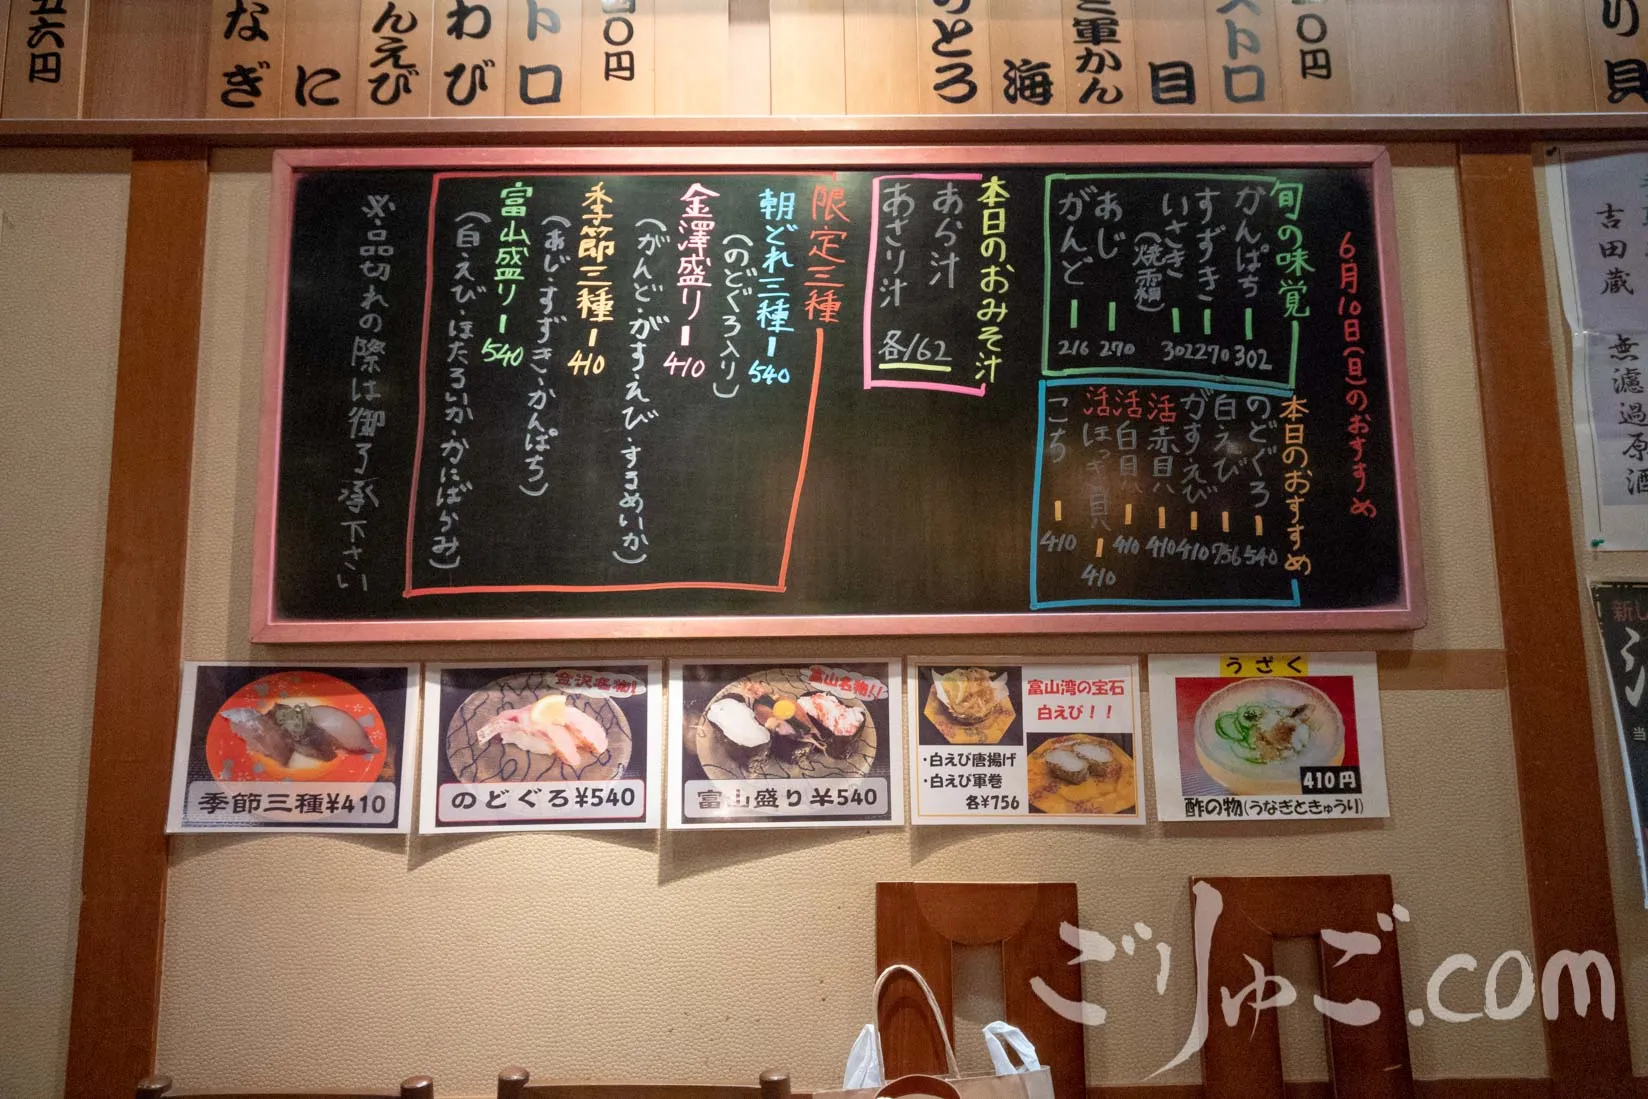 六円
なぎ
に
んえび
わび
トロ
〇円
とろ
海
軍かん
目
トロ
〇円
り貝
6月10日(日)のおすすめ
旬の味覚
かんぱち 302
すずき 270
いさき(焼霜) 302
あじ 270
がんど 216
本日のおすすめ
のどぐろ 540
白えび 756
がすえび 410
活赤貝 410
活白貝 410
活ほっき貝 410
こち 410
本日のおみそ汁
あら汁
あさり汁
各162
限定三種
朝どれ三種 540
(のどぐろ入り)
金澤盛り 410
(がんど・がすえび・するめいか)
季節三種 410
(あじ・すずき・かんぱち)
富山盛り 540
(白えび・ほたるいか・かにばらみ)
※品切れの際は御了承下さい
吉田蔵
無濾過原酒
季節三種¥410
金沢名物!
のどぐろ¥540
富山名物!!
富山盛り¥540
富山湾の宝石
白えび!!
・白えび唐揚げ
・白えび軍巻
各¥756
うざく
410円
酢の物(うなぎときゅうり)
ごりゅご.com